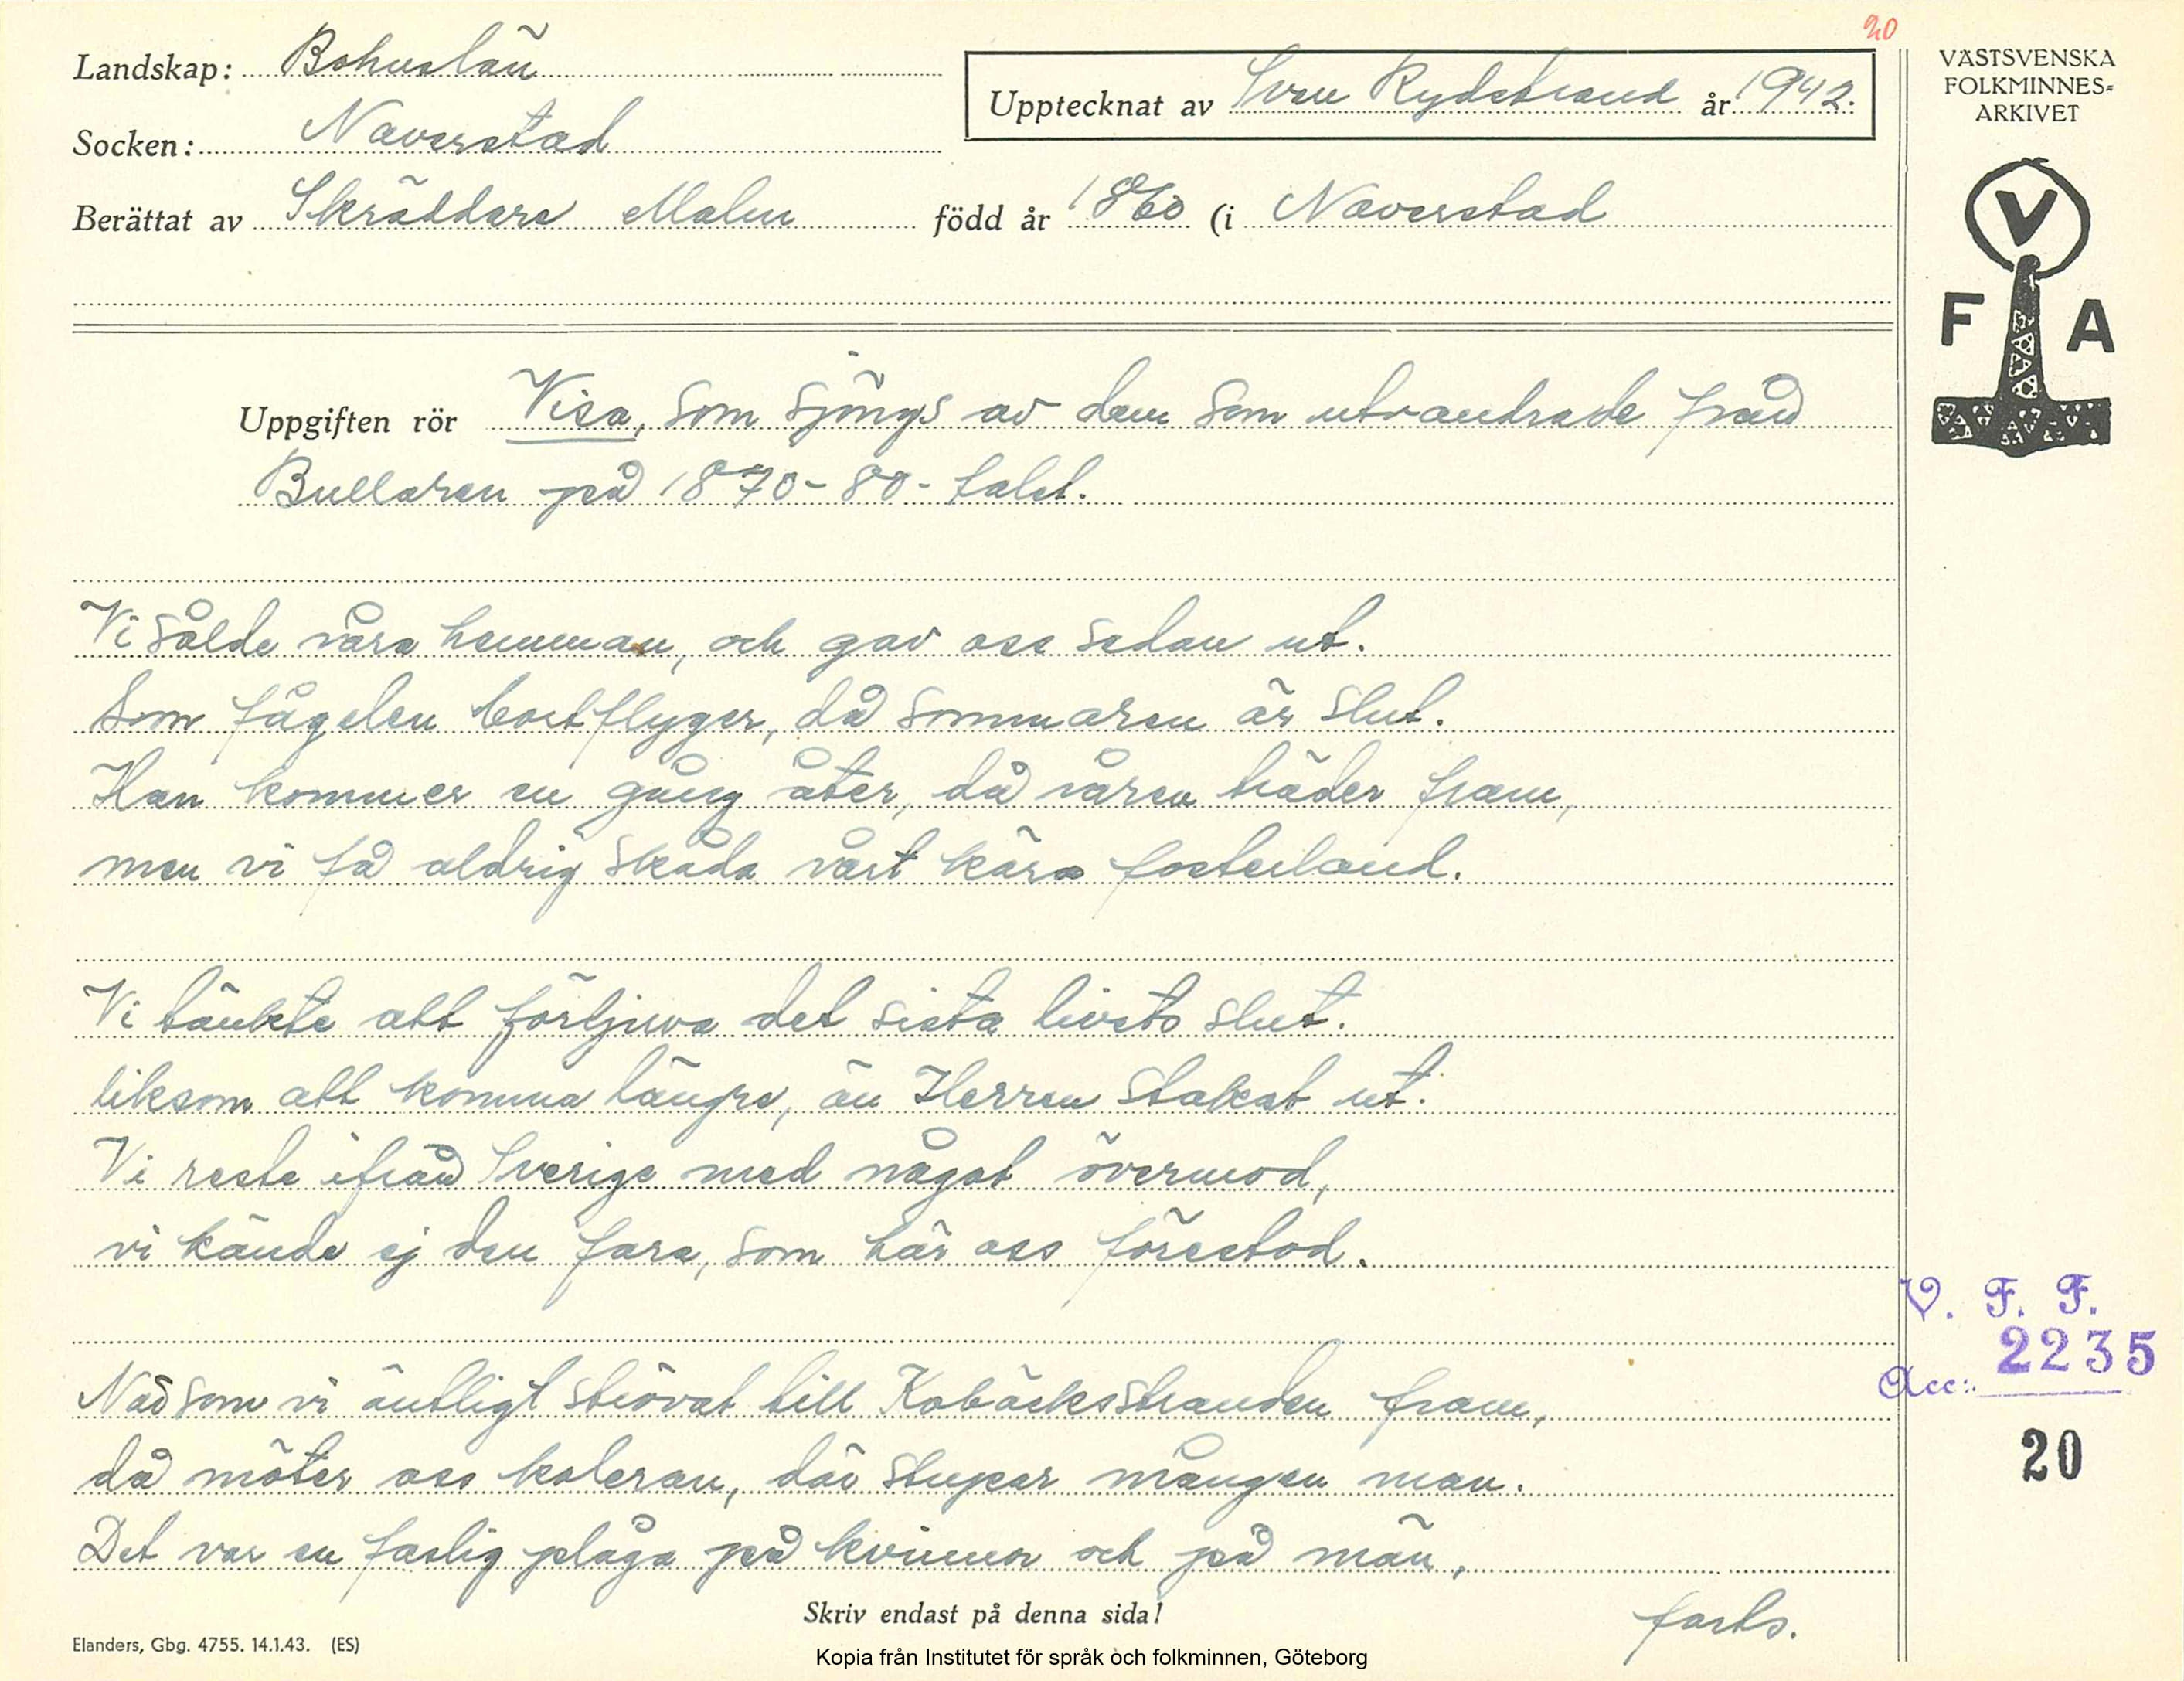 20
Landskap: Bohuslän
Upptecknat av Sven Rydstrand år 1942.
VÄSTSVENSKA
FOLKMINNES=
ARKIVET
Socken: Naverstad
Berättat av Skräddare Malm född år 1860 (i Naverstad
V
F A
Uppgiften rör Visa, som sjöngs av dem som utvandrade från
Bullaren på 1870-80-talet.
Vi sålde våra hemman, och gav oss sedan ut.
Som fågelen bortflyger, då sommaren är slut.
Han kommer en gång åter, då våren träder fram,
men vi få aldrig skåda vårt kära fosterland.
Vi tänkte att förljuva det sista livets slut.
liksom att komma längre, än Herren stakat ut.
Vi reste ifrån Sverige med något övermod,
vi kände ej den fara, som här oss förestod.
När som vi äntligt strövat till Kobäcksstranden fram,
då möter oss koleran, där stupar mången man.
Det var en farlig plåga på kvinnor och på män,
forts.
V. F. F.
Acc: 2235
20
Skriv endast på denna sida!
Elanders, Gbg. 4755. 14.1.43. (ES)
Kopia från Institutet för språk och folkminnen, Göteborg